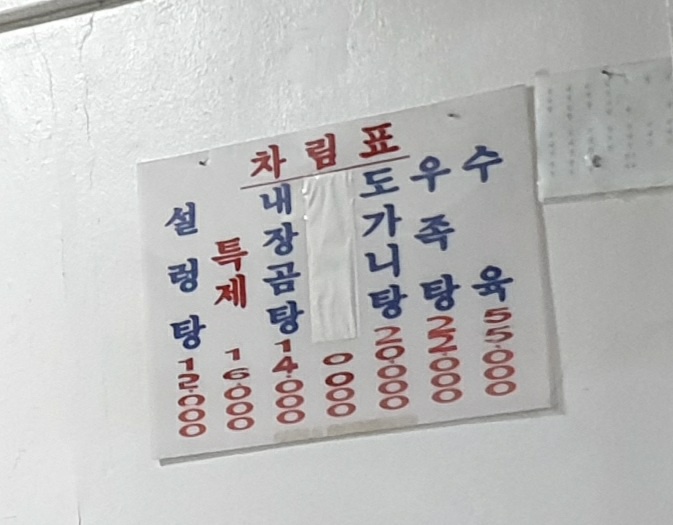 차림표
설렁탕 12.000
특제 16.000
내장곰탕 14.000
000
도가니탕 20.000
우족탕 22.000
수육 55.000